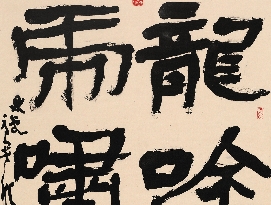 龍吟
虎嘯